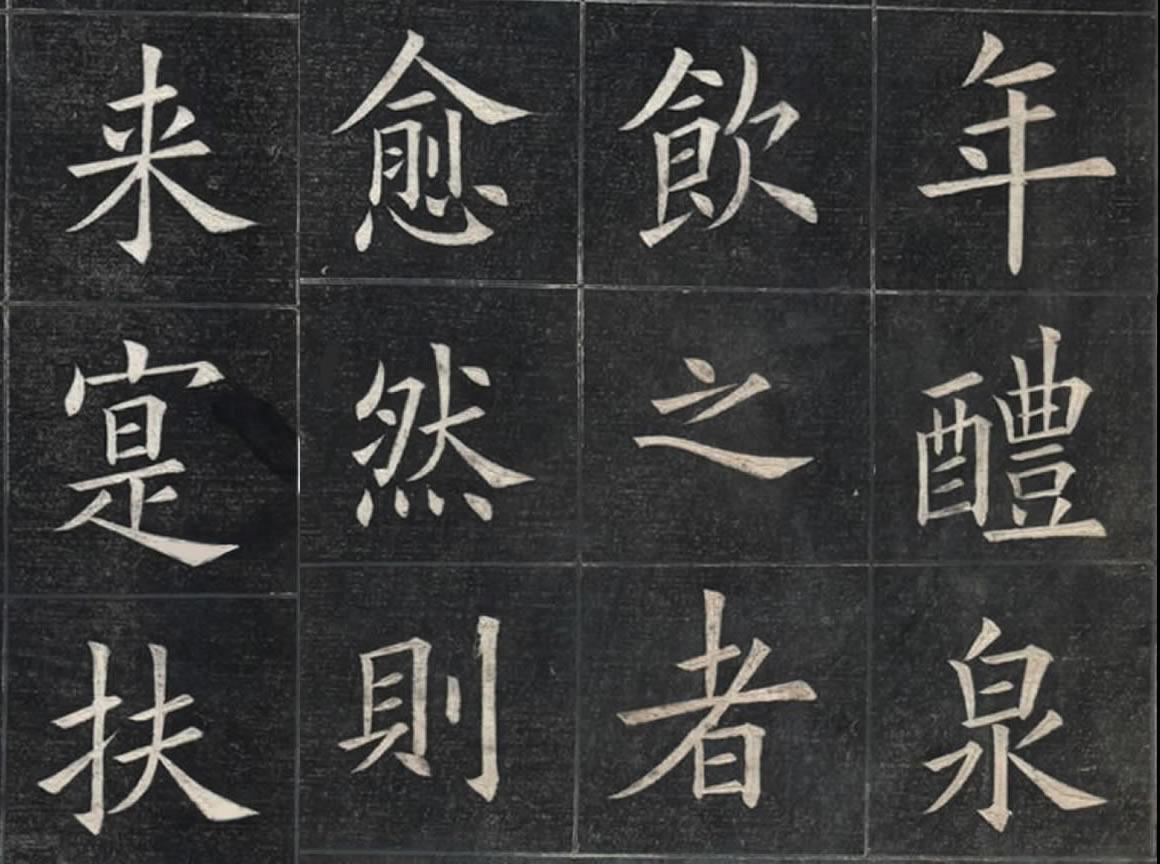 年醴泉
飲之者
愈然則
来寔扶